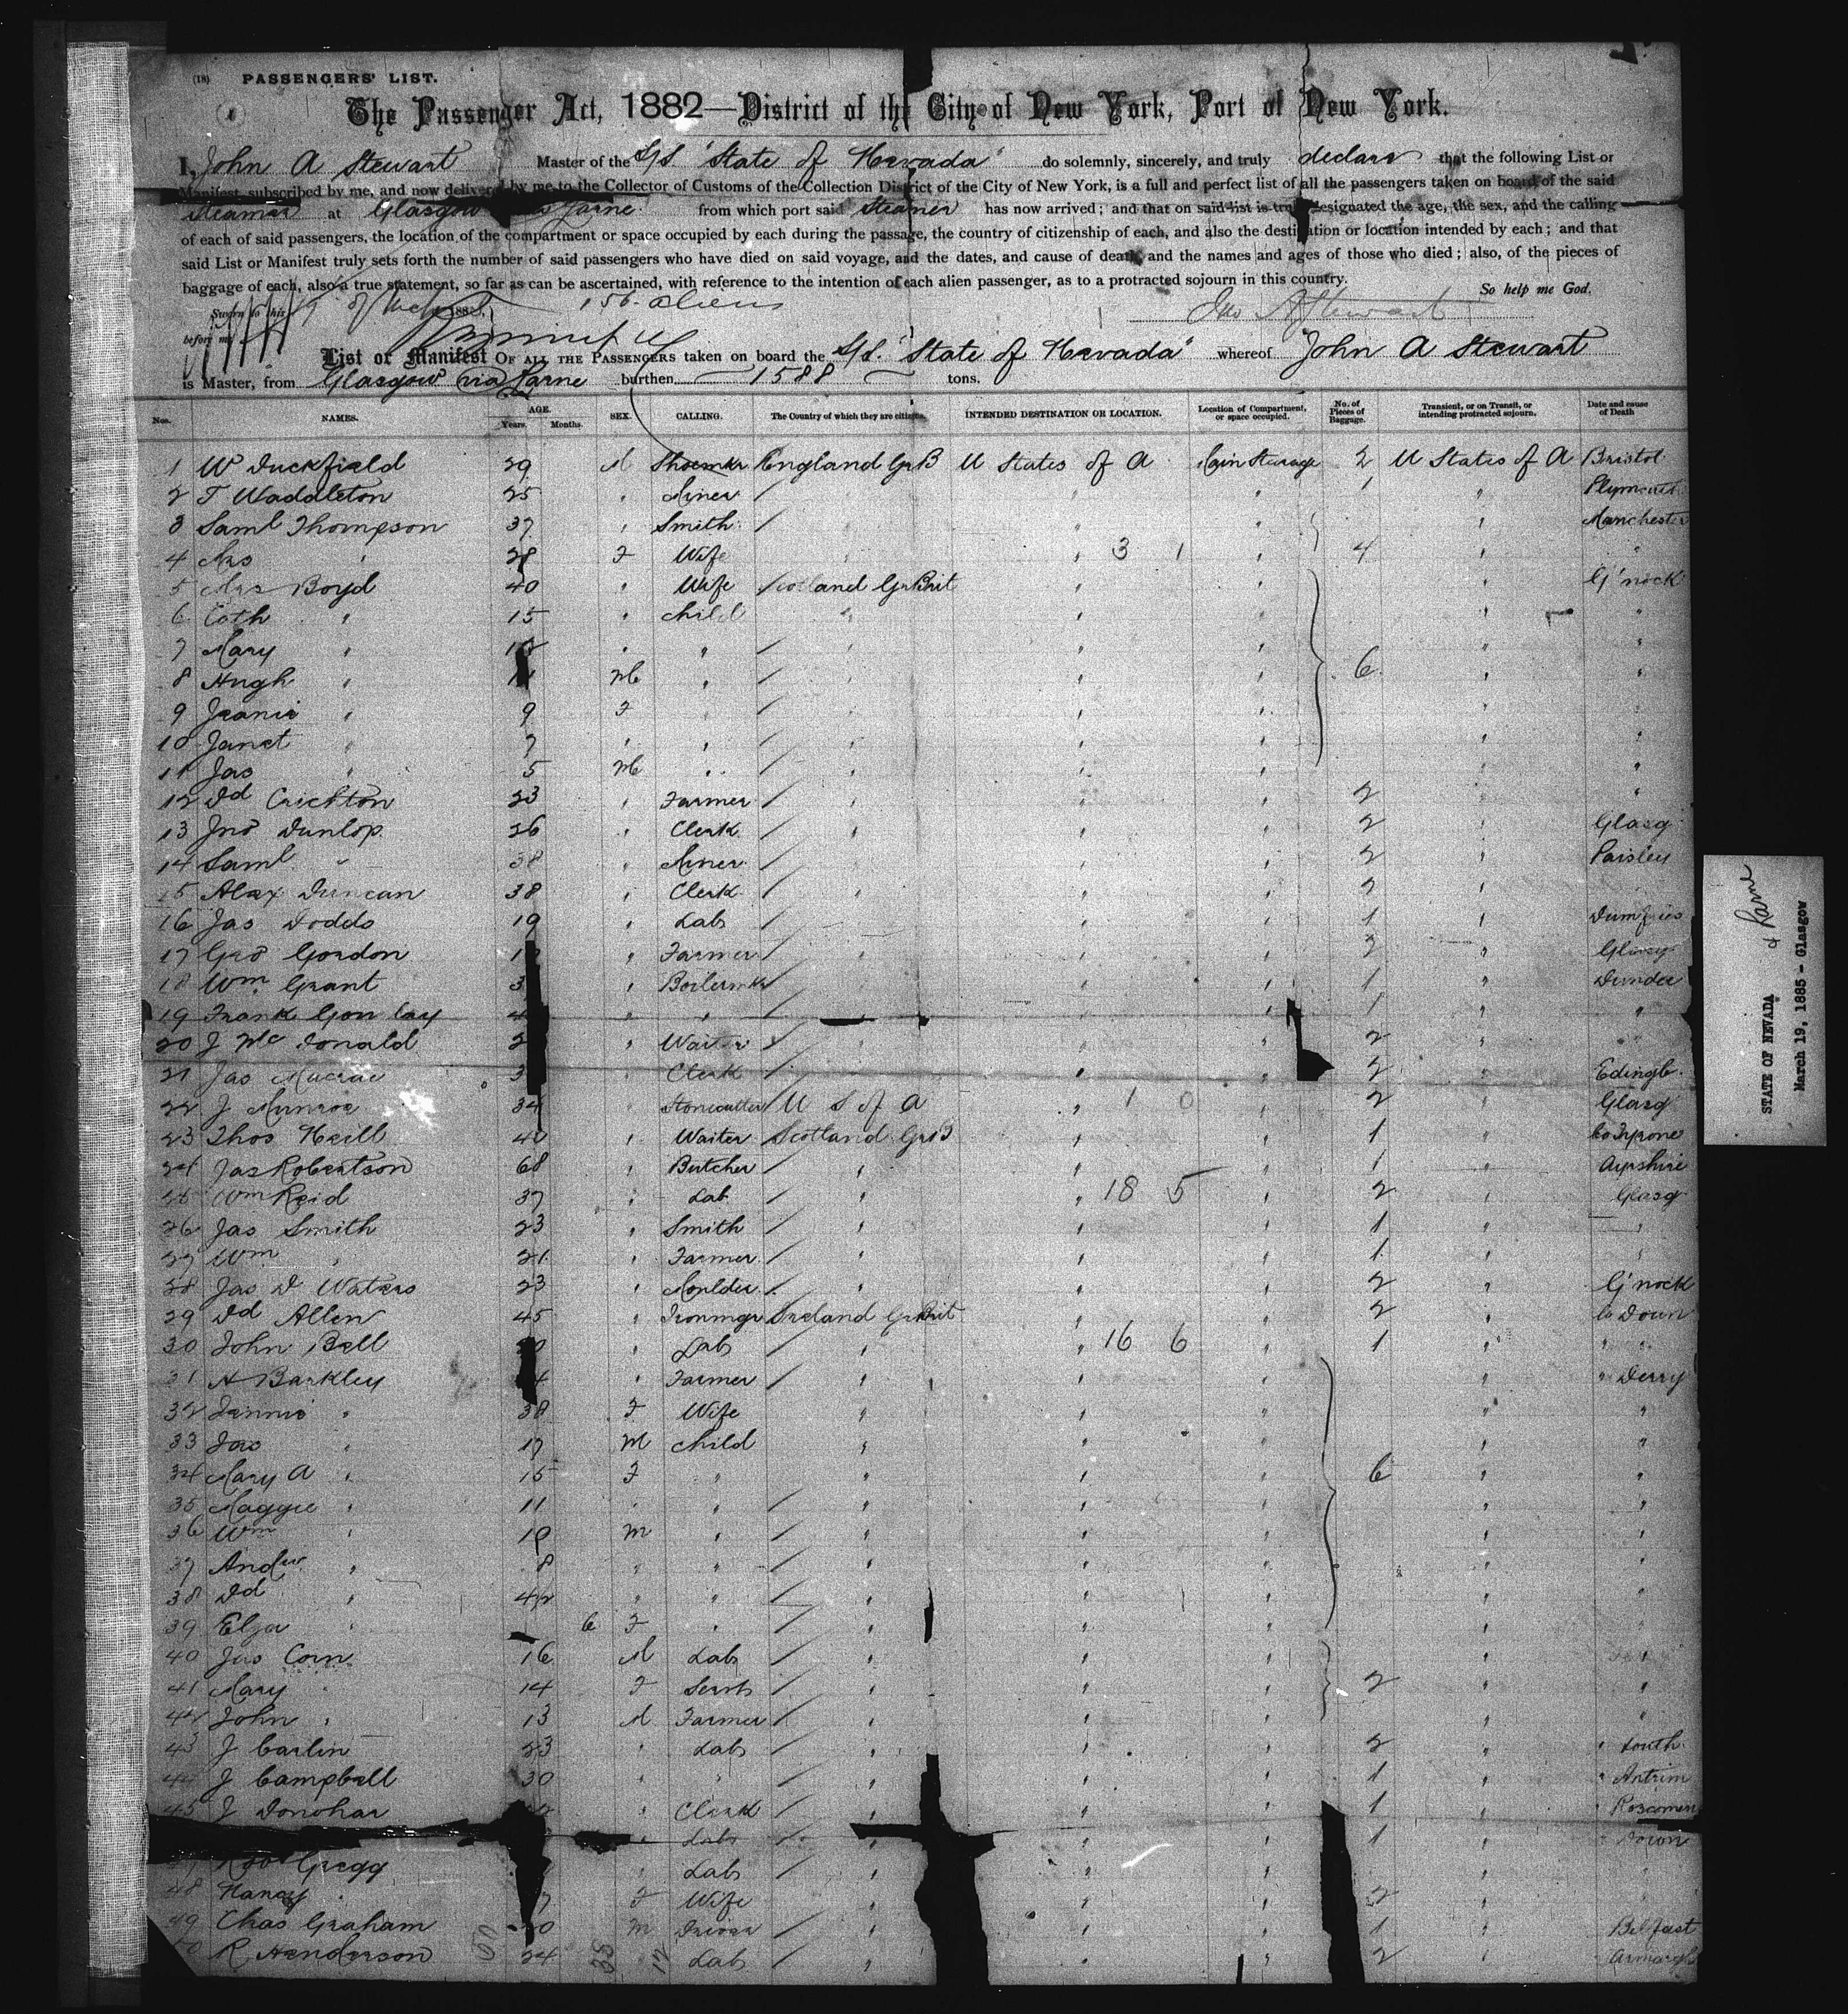 (18) PASSENGERS' LIST.
The Passenger Act, 1882—District of the City of New York, Port of New York.
I, John A Stewart Master of the S/S. "State of Nevada" do solemnly, sincerely, and truly declare that the following List or
Manifest, subscribed by me, and now delivered by me to the Collector of Customs of the Collection District of the City of New York, is a full and perfect list of all the passengers taken on board of the said
Steamer at Glasgow Larne from which port said Steamer has now arrived; and that on said list is truly designated the age, the sex, and the calling
of each of said passengers, the location of the compartment or space occupied by each during the passage, the country of citizenship of each, and also the destination or location intended by each; and that
said List or Manifest truly sets forth the number of said passengers who have died on said voyage, and the dates, and cause of death, and the names and ages of those who died; also, of the pieces of
baggage of each, also a true statement, so far as can be ascertained, with reference to the intention of each alien passenger, as to a protracted sojourn in this country. So help me God.
Sworn to this 188 156 aliens Jno A Stewart
before me
List or Manifest OF ALL THE PASSENGERS taken on board the S/S. "State of Nevada" whereof John A Stewart
is Master, from Glasgow via Larne burthen 1588 tons.
Nos. NAMES. AGE. Years. Months. SEX. CALLING. The Country of which they are citizens. INTENDED DESTINATION OR LOCATION. Location of Compartment, or space occupied. No. of Pieces of Baggage. Transient, or on Transit, or intending protracted sojourn. Date and cause of Death
1 W Duckfield 29 M Shoemkr England Gr B U States of A Main Steerage 2 U States of A Bristol
2 T Waddleton 25 " Miner / " " 1 " Plymouth
3 Saml Thompson 37 " Smith / " " " " Manchester
4 Mrs " 28 F Wife " " 3 1 " 4 " "
5 Mrs Boyd 40 " Wife Scotland Gr Brit " " " G'nock
6 Cath " 15 " child " " " " "
7 Mary " " " / " " " " "
8 Hugh " M " / " " " 6 " "
9 Jeanie " 9 F / " " " " "
10 Janet " 7 " " / " " " " "
11 Jas " 5 M " / " " " " "
12 Dd Crichton 23 " Farmer / " " " 2 " "
13 Jno Dunlop 26 " Clerk / " " " 2 " Glasg
14 Saml " 38 " Miner / " " " 2 " Paisley
15 Alex Duncan 38 " Clerk / " " " 2 " "
16 Jas Dodds 19 " Lab / " " " 1 " Dumfries
17 Geo Gordon " Farmer / " " " 2 " Glasg
18 Wm Grant " Boilermkr / " " " 1 " Dundee
19 Frank Gourlay " " / " " " 1 " "
20 J McDonald " Waiter / " " " 2 " "
21 Jas Macrae " Clerk / " " " 2 " Edingb.
22 J Munroe 34 " Stonecutter U S of A " 1 0 " 2 " Glasg
23 Thos Neill 40 " Waiter Scotland Gr B " " 1 " Co Tyrone
24 Jas Robertson 68 " Butcher / " " " 1 " Ayrshire
25 Wm Reid 37 " Lab / " " 18 5 " 2 " Glasg
26 Jas Smith 23 " Smith / " " " 1 " "
27 Wm " 21 " Farmer / " " " 1 " "
28 Jas D Waters 23 " Moulder / " " " 2 " G'nock
29 Dd Allen 45 " Ironmgr Ireland Gr Brit " " 2 " Co Down
30 John Bell " Lab / " " 16 6 " 1 " " "
31 A Barkley " Farmer / " " " " " Derry
32 Jennie " 38 F Wife " " " " "
33 Jas " 17 M child " " " " "
34 Mary A " 15 F " " " " 6 " "
35 Maggie " 11 " " / " " " " "
36 Wm " 10 M " / " " " " "
37 Andw " 8 " " / " " " " "
38 Dd " " " / " " " " "
39 Eliza " 6 F " / " " " " "
40 Jas Corn 16 M Lab / " " " " "
41 Mary " 14 F Servt / " " " 2 " "
42 John " 13 M Farmer / " " " " "
43 J Carlin 23 " Lab / " " " 2 " " Louth
44 J Campbell 30 " " / " " " 1 " " Antrim
45 J Donohar " Clerk / " " " 1 " " Roscommn
" Lab / " " " 1 " " Down
47 Robt Gregg " Lab / " " " " "
48 Nancy " F Wife " " " 2 " "
49 Chas Graham M Driver / " " " 1 " Belfast
50 R Henderson 24 Lab / " " " 2 " Armargh
50 38 12
STATE OF NEVADA
March 19, 1885 - Glasgow
& Larne